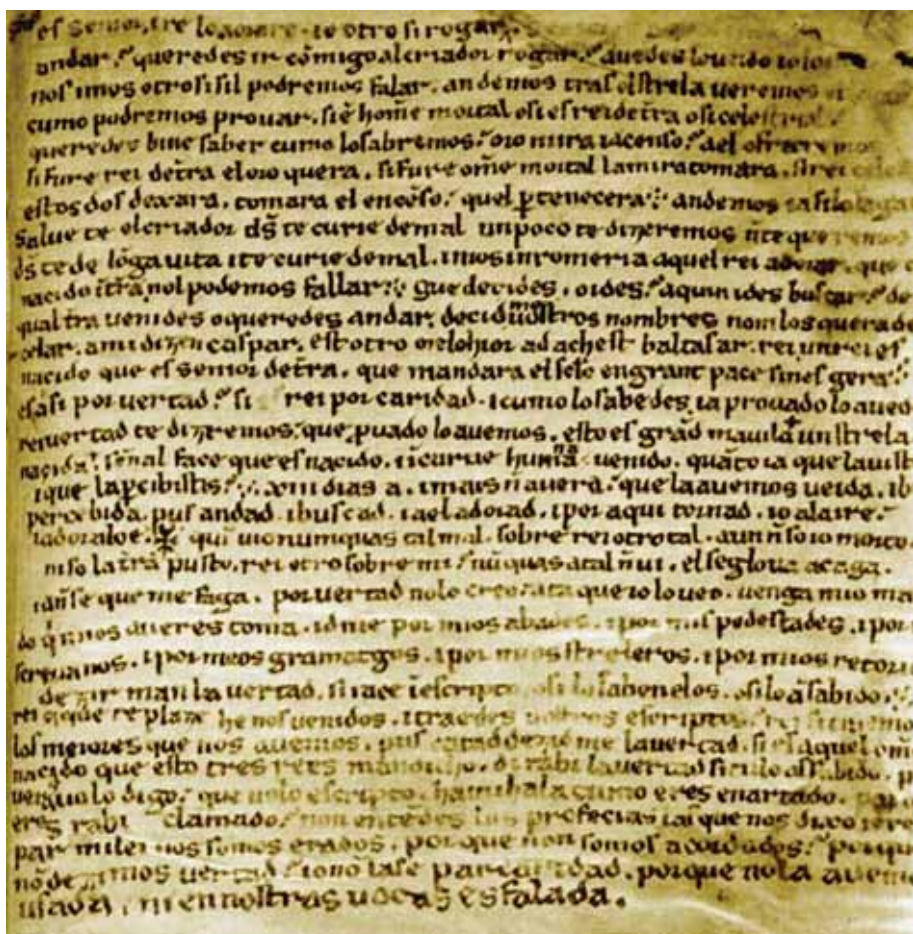 es senior, ire lo aorare. io otrosi rogar
andar. queredes ir comigo al criador rogar. auedes lo ueido io lo
nos imos otrosi sil podremos falar. andemos tras el strela ueremos el
cumo podremos prouar. si ē home mortal o si es rei de tr̄a o si celestrial.
queredes bine saber cumo lo sabremos. oro mira i acenso. a el ofreceremos
si fure rei de tr̄a el oro quera. si fure om̄e mortal la mira tomara. si rei
estos dos dexara. tomara el encēso. quel p̄tenecera. andemos
Salue te el criador dś te curie de mal un poco te dizeremos
dś te de lōga uita i te curie de mal. imos in romeria aquel rei adorar. que
nacido ī tr̄a nol podemos fallar. que decides. o ides. a quin ides buscar. de
qual tr̄a uenides o queredes andar. decid uostros nombres nom los querades
celar. a mi dizen caspar. est otro melchior ad achest baltasar. rei un rei es
nacido que es senior de tr̄a. que mandara el seclo en grant pace sines gera.
es asi por uertad. si rei por caridad. i cumo lo sabedes. ia prouado lo auedes
rei uertad te dizremos. que p̄uado lo auemos. esto es grād marauila un strela
nacida. senial face que es nacido. i in carne humana uenido. quāto ia que la uist
i que la p̄cibistis. xiii dias a. i mais n̄ auera. que la auemos ueida. i b
percebida. pus andad. i buscad. i a el adorad. i por aqui tornad. io ala ire.
i adoralo e. qui uio numquas tal mal. sobre rei otro tal. aun n̄ so io morto.
ni so la tr̄a pusto. rei otro sobre mi. nūquas atal n̄ ui. el seglo ua a caga.
ia n̄ se que me faga. por uertad no lo creo. ata que io lo ueo. uenga mio ma
do q̄ mios aueres toma. idme por mios abades. i por mis pedestades. i por
scriuanos. i por meos gramatgos. i por mios streleros. i por mios retori
dezir man la uertad. si iace ī escripto. o si lo saben elos. o si lo ā sabido.
rei que te plaze he nos uenidos. i traedes uostros escriptos. rei si traemos
los meiores que nos auemos. pus catad dezid me la uertad. si es aquel om̄e
nacido que esto tres rees man dicho. di rabi la uertad si tu lo as sabido. p
ueras uo lo digo. que no lo escripto. hamihala cumo eres enartado. por
eres rabi clamado. non entēdes las profecias las que nos dixo iere
par mi lei nos somos erados. por que non somos acordados. por que
nō dezimos uertad. io nō la se par caridad. porque no la auemos
usada. ni en nostras uocas es falada.